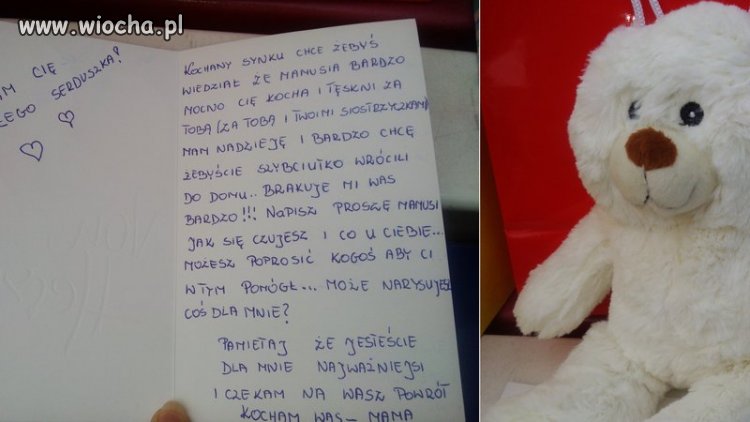 www.wiocha.pl
M CIĘ
EGO SERDUSZKA?
KOCHANY SYNKU CHCE ŻEBYŚ
WIEDZIAŁ ŻE MAMUSIA BARDZO
MOCNO CIĘ KOCHA I TĘSKNI ZA
TOBĄ (ZA TOBĄ I TWOIMI SIOSTRZYCZKAMI)
MAM NADZIEJĘ I BARDZO CHCĘ
ŻEBYŚCIE SZYBCIUTKO WRÓCILI
DO DOMU.. BRAKUJE MI WAS
BARDZO!!! NAPISZ PROSZĘ MAMUSI
JAK SIĘ CZUJESZ I CO U CIEBIE...
MOŻESZ POPROSIĆ KOGOŚ ABY CI
W TYM POMÓGŁ... MOŻE NARYSUJESZ
COŚ DLA MNIE?
PAMIETAJ ŻE JESTEŚCIE
DLA MNIE NAJWAŻNIEJSI
I CZEKAM NA WASZ POWRÓT
KOCHAM WAS – MAMA